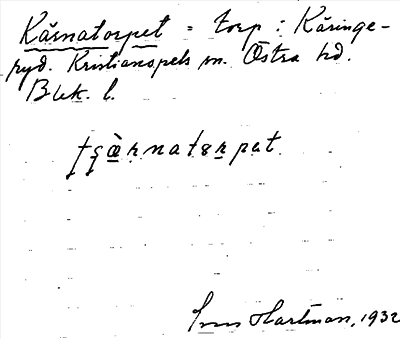 Kärnatorpet = torp : Käringe-
ryd. Kristianopels sn. Östra hd.
Blek. l.
Hartman, 1932